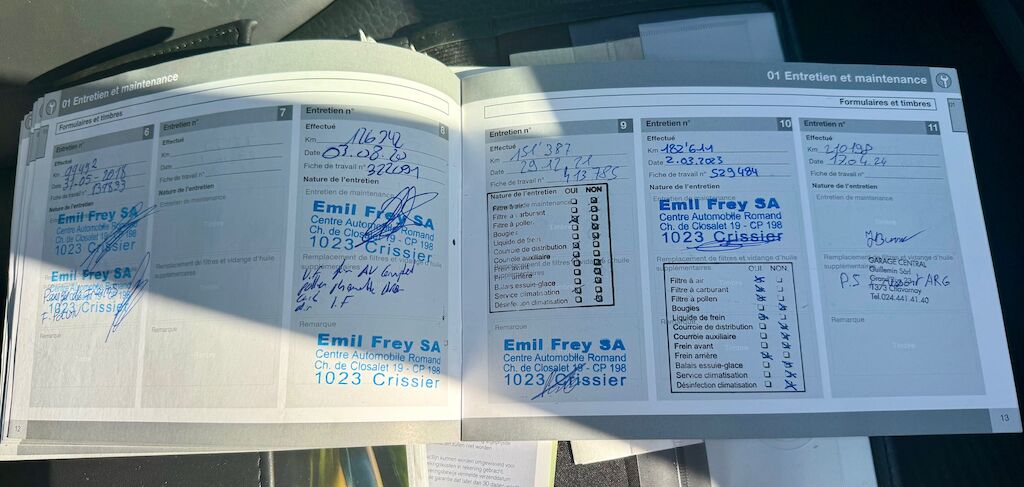 01 Entretien et maintenance
Formulaires et timbres
Entretien n° 6
Effectué
Km
Date 31-05-2018
Fiche de travail n°
Nature de l'entretien
Emil Frey SA
Centre Automobile Romand
Ch. de Closalet 19 - CP 198
1023 Crissier
supplémentaires
Emil Frey SA
Remarque
12
Entretien n° 7
Effectué
Km
Date
Fiche de travail n°
Nature de l'entretien
Entretien de maintenance
Remplacement de filtres et vidange d'huile
supplémentaires
Remarque
Entretien n° 8
Effectué
Km 126'242
Date 03.08.20
Fiche de travail n° 322091
Nature de l'entretien
Entretien de maintenance
Emil Frey SA
Centre Automobile Romand
Ch. de Closalet 19 - CP 198
1023 Crissier
Remplacement de filtres et vidange d'huile
supplémentaires
Remarque
Emil Frey SA
Centre Automobile Romand
Ch. de Closalet 19 - CP 198
1023 Crissier
01 Entretien et maintenance
Formulaires et timbres
01
Entretien n° 9
Effectué
Km 151'387
Date 29.12.21
Fiche de travail n° 413785
Nature de l'entretien OUI NON
Filtre à air
Filtre à carburant
Filtre à pollen
Bougies
Liquide de frein
Courroie de distribution
Courroie auxiliaire
Frein avant
Frein arrière
Balais essuie-glace
Service climatisation
Désinfection climatisation
Remarque
Emil Frey SA
Centre Automobile Romand
Ch. de Closalet 19 - CP 198
1023 Crissier
Entretien n° 10
Effectué
Km 182'611
Date 2.03.2023
Fiche de travail n° 529484
Nature de l'entretien
Emil Frey SA
Centre Automobile Romand
Ch. de Closalet 19 - CP 198
1023 Crissier
Remplacement de filtres et vidange d'huile
supplémentaires OUI NON
Filtre à air
Filtre à carburant
Filtre à pollen
Bougies
Liquide de frein
Courroie de distribution
Courroie auxiliaire
Frein avant
Frein arrière
Balais essuie-glace
Service climatisation
Désinfection climatisation
Entretien n° 11
Effectué
Km
Date 17.04.24
Fiche de travail n°
Nature de l'entretien
Entretien de maintenance
Remplacement de filtres et vidange d'huile
supplémentaires
GARAGE CENTRAL
Guillemin Sàrl
1373 Chavornay
Tel.024.441.41.40
Remarque
13